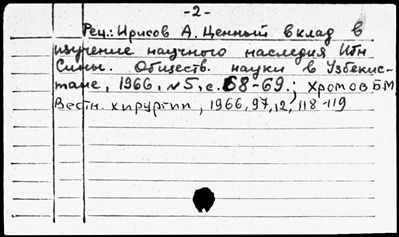 -2-
Рец.: Ирисов А. Ценный вклад в
изучение научного наследия Ибн
Сины. Обществ. науки в Узбекис-
тане, 1966, №5, с. 68-69.; Хромов Б.М.
Вестн. хирургии, 1966, 97, 12, 118-119